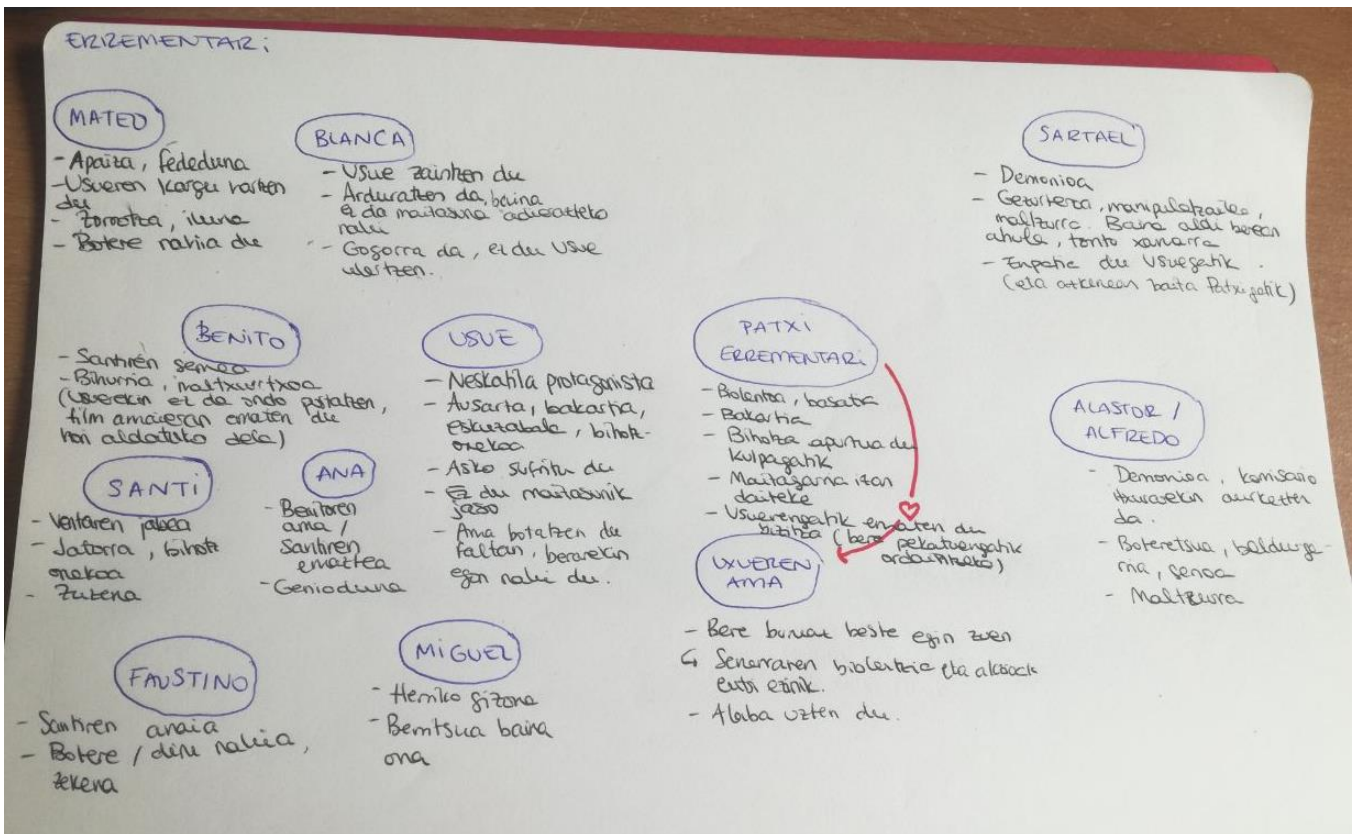 ERREMENTARi
MATEO
- Apaiza, fededuna
- Usueren kargu hartzen
du
- Zorrotza, iluna
- Botere nahia du
BLANCA
- Usue zaintzen du
- Arduratzen da, baina
ez da maitasuna adierazteko
- Gogorra da, ez du Usue
ulertzen.
SARTAEL
- Demonioa
- Gezurteroa, manipulatzailea,
maltzurra. Baina aldi berean
ahula, tonto xamarra
- Enpatia du Usuegatik.
(eta azkenean baita Patxigatik)
BENiTO
- Santiren semea
- Bihurria, maltzurtxoa
(Usuerekin ez da ondo portatzen,
film amaieran ematen du
hori aldatuko dela)
USUE
- Neskatila protagonista
- Ausarta, bakartia,
eskuzabala, bihotz-
onekoa
- Asko sufritu du
- Ez du maitasunik
jaso
- Ama botatzen du
faltan, berarekin
egon nahi du.
PATXI
ERREMENTARi
- Biolentoa, basatia
- Bakartia
- Bihotza apurtua du
kulpagatik
- Maitagarria izan
daiteke
- Usuerengatik ematen du
bizitza (bere pekatuengatik
ordaintzeko)
ALASTOR /
ALFREDO
- Demonioa, komisario
itxurarekin aurkezten
da.
- Boteretsua, beldurga-
rria, serioa
- Maltzurra
SANTi
- Ventaren jabea
- Jatorra, bihotz
onekoa
- Zuzena
ANA
- Benitoren
ama /
Santiren
emaztea
- Genioduna
UXUEREN
AMA
- Bere buruaz beste egin zuen
↳ Senarraren biolentzia eta
eutsi ezinik.
- Alaba uzten du.
FAUSTINO
- Santiren anaia
- Botere / diru nahia,
zekena
MiGUEL
- Herriko gizona
- Berritsua baina
ona